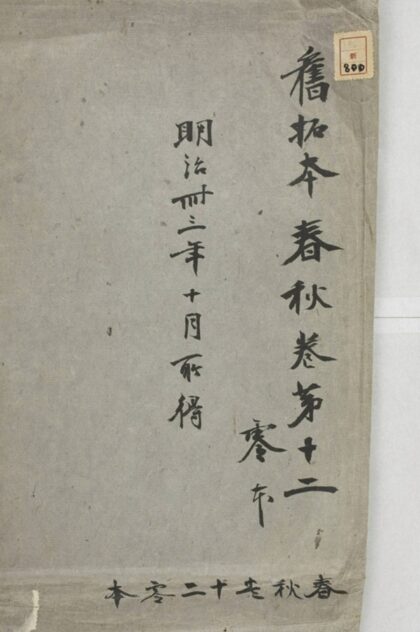 舊拓本春秋卷第十二
零本
明治卌三年十月所得
春秋巻十二零本
新
800